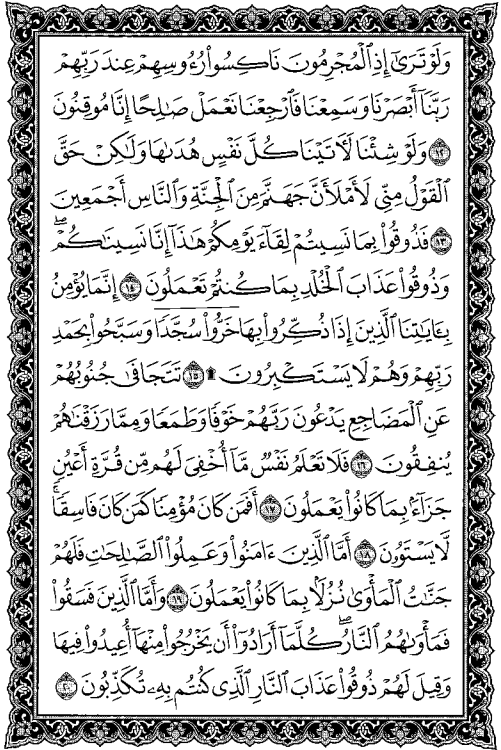 وَلَوْ تَرَىٰٓ إِذِ ٱلْمُجْرِمُونَ نَاكِسُوا۟ رُءُوسِهِمْ عِندَ رَبِّهِمْ
رَبَّنَآ أَبْصَرْنَا وَسَمِعْنَا فَٱرْجِعْنَا نَعْمَلْ صَـٰلِحًا إِنَّا مُوقِنُونَ
﴿١٢﴾ وَلَوْ شِئْنَا لَـَٔاتَيْنَا كُلَّ نَفْسٍ هُدَىٰهَا وَلَـٰكِنْ حَقَّ
ٱلْقَوْلُ مِنِّى لَأَمْلَأَنَّ جَهَنَّمَ مِنَ ٱلْجِنَّةِ وَٱلنَّاسِ أَجْمَعِينَ
﴿١٣﴾ فَذُوقُوا۟ بِمَا نَسِيتُمْ لِقَآءَ يَوْمِكُمْ هَـٰذَآ إِنَّا نَسِينَـٰكُمْ ۖ
وَذُوقُوا۟ عَذَابَ ٱلْخُلْدِ بِمَا كُنتُمْ تَعْمَلُونَ ﴿١٤﴾ إِنَّمَا يُؤْمِنُ
بِـَٔايَـٰتِنَا ٱلَّذِينَ إِذَا ذُكِّرُوا۟ بِهَا خَرُّوا۟ سُجَّدًا وَسَبَّحُوا۟ بِحَمْدِ
رَبِّهِمْ وَهُمْ لَا يَسْتَكْبِرُونَ ۩ ﴿١٥﴾ تَتَجَافَىٰ جُنُوبُهُمْ
عَنِ ٱلْمَضَاجِعِ يَدْعُونَ رَبَّهُمْ خَوْفًا وَطَمَعًا وَمِمَّا رَزَقْنَـٰهُمْ
يُنفِقُونَ ﴿١٦﴾ فَلَا تَعْلَمُ نَفْسٌ مَّآ أُخْفِىَ لَهُم مِّن قُرَّةِ أَعْيُنٍ
جَزَآءًۢ بِمَا كَانُوا۟ يَعْمَلُونَ ﴿١٧﴾ أَفَمَن كَانَ مُؤْمِنًا كَمَن كَانَ فَاسِقًا ۚ
لَّا يَسْتَوُۥنَ ﴿١٨﴾ أَمَّا ٱلَّذِينَ ءَامَنُوا۟ وَعَمِلُوا۟ ٱلصَّـٰلِحَـٰتِ فَلَهُمْ
جَنَّـٰتُ ٱلْمَأْوَىٰ نُزُلًۢا بِمَا كَانُوا۟ يَعْمَلُونَ ﴿١٩﴾ وَأَمَّا ٱلَّذِينَ فَسَقُوا۟
فَمَأْوَىٰهُمُ ٱلنَّارُ ۖ كُلَّمَآ أَرَادُوٓا۟ أَن يَخْرُجُوا۟ مِنْهَآ أُعِيدُوا۟ فِيهَا
وَقِيلَ لَهُمْ ذُوقُوا۟ عَذَابَ ٱلنَّارِ ٱلَّذِى كُنتُم بِهِۦ تُكَذِّبُونَ ﴿٢٠﴾